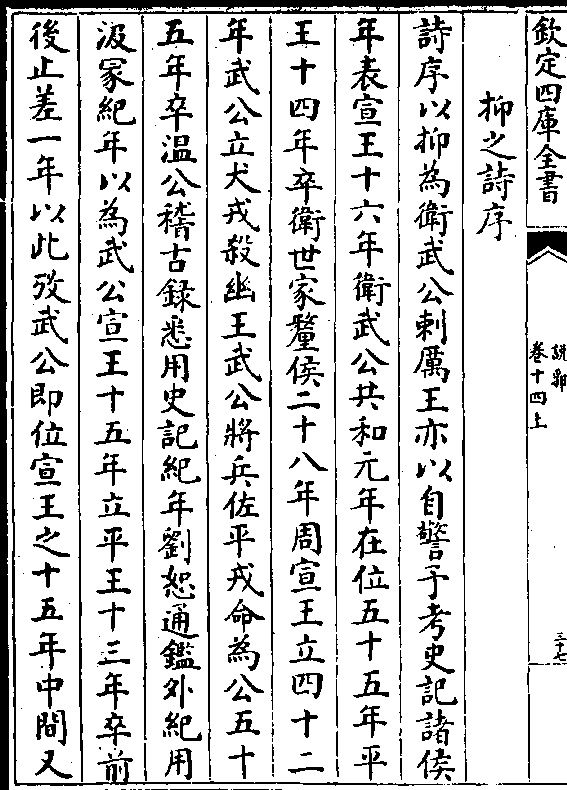 欽定四庫全書
說郛
卷十四上
三十七
抑之詩序
詩序以抑為衛武公刺厲王亦以自警予考史記諸侯
年表宣王十六年衛武公共和元年在位五十五年平
王十四年卒衛世家釐侯二十八年周宣王立四十二
年武公立犬戎殺幽王武公將兵佐平戎命為公五十
五年卒温公稽古録悉用史記紀年劉恕通鑑外紀用
汲冢紀年以為武公宣王十五年立平王十三年卒前
後止差一年以此攷武公即位宣王之十五年中間又